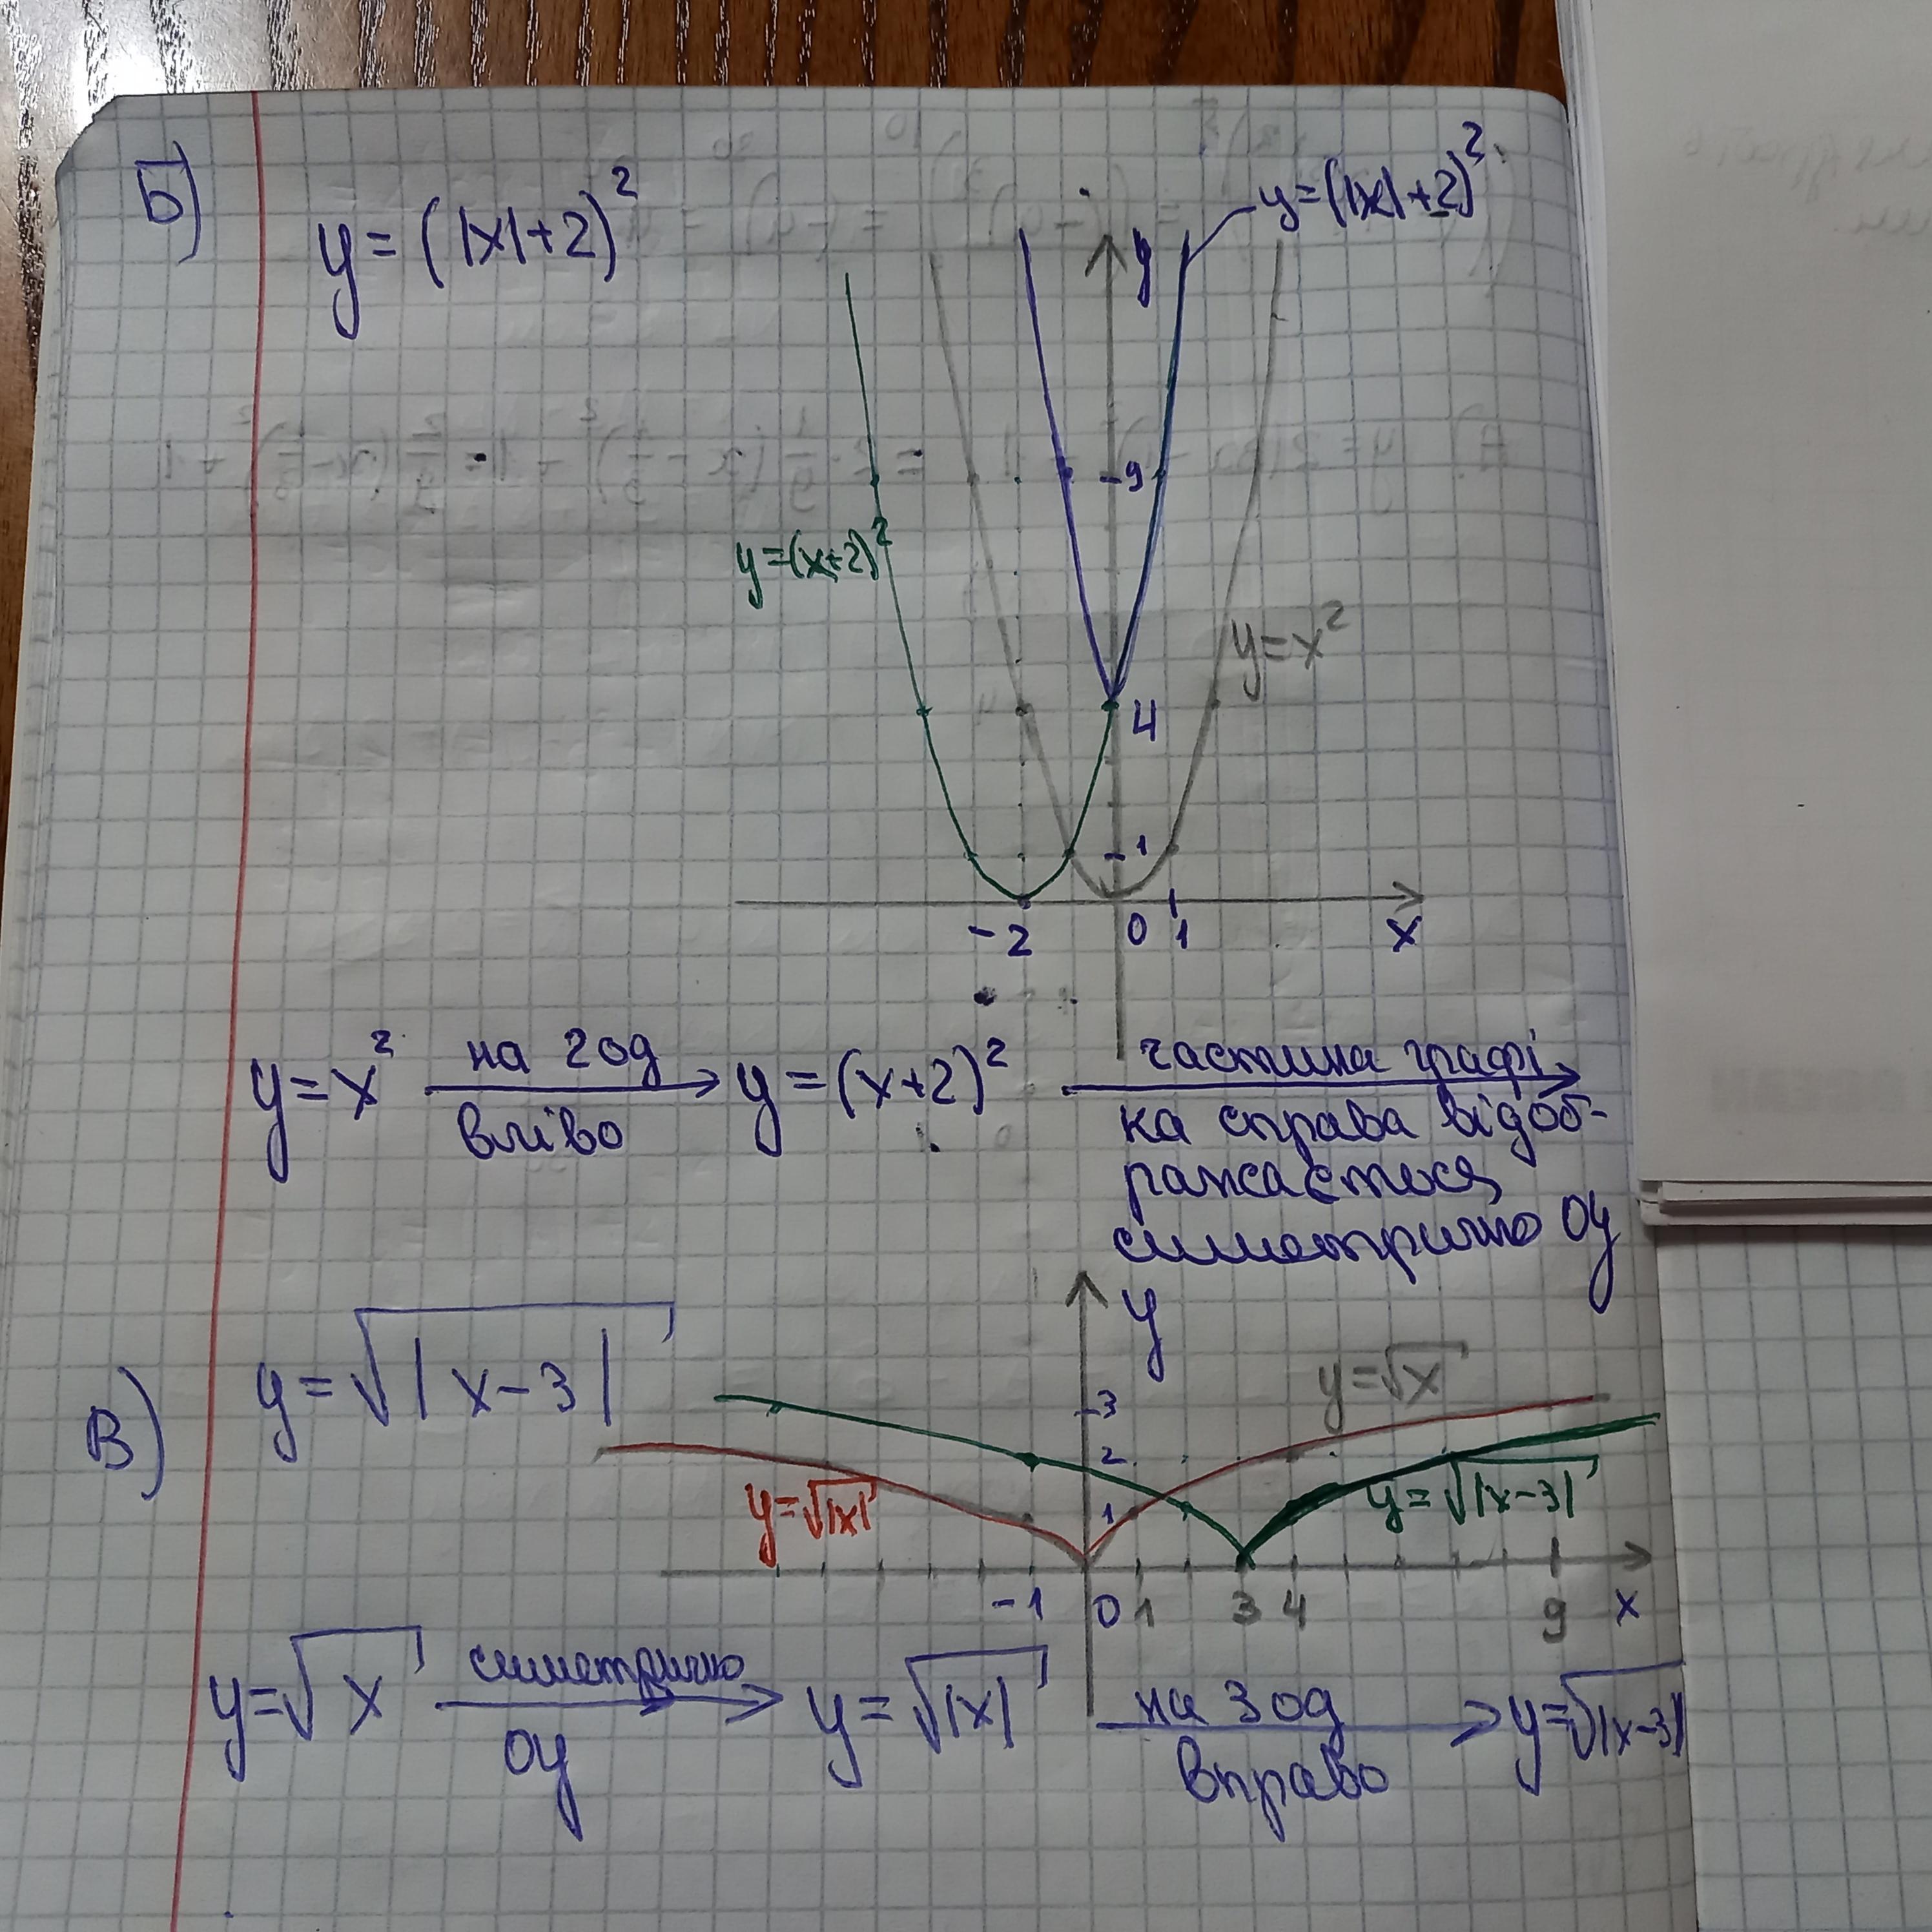 Б) y = (|x|+2)²
y=(|x|+2)²
y
9
y=(x+2)²
y=x²
4
4
1
-2 0 1 x
y=x² на 2 од вліво → y=(x+2)² частина графі
ка справа відоб-
ражається
симетрично Oy
В) y=√|x-3|
y
y=√x
3
2
y=√|x|
1
y=√|x-3|
-1 0 1 3 4 9 x
y=√x симетрично Oy → y=√|x| на 3 од вправо → y=√|x-3|